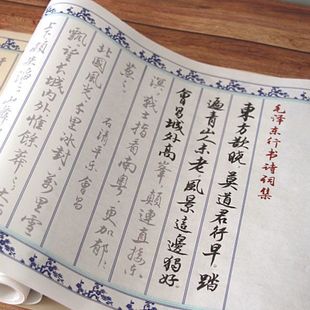 毛泽东行书诗词集
東方欲曉莫道君行早踏
遍青山人未老風景這邊獨好
會昌城外高峯顛連直接东
溟戰士指看南粵更加郁
葱
右清平乐會昌
北國風光千里冰封萬里雪
飘望长城内外惟馀莽莽大